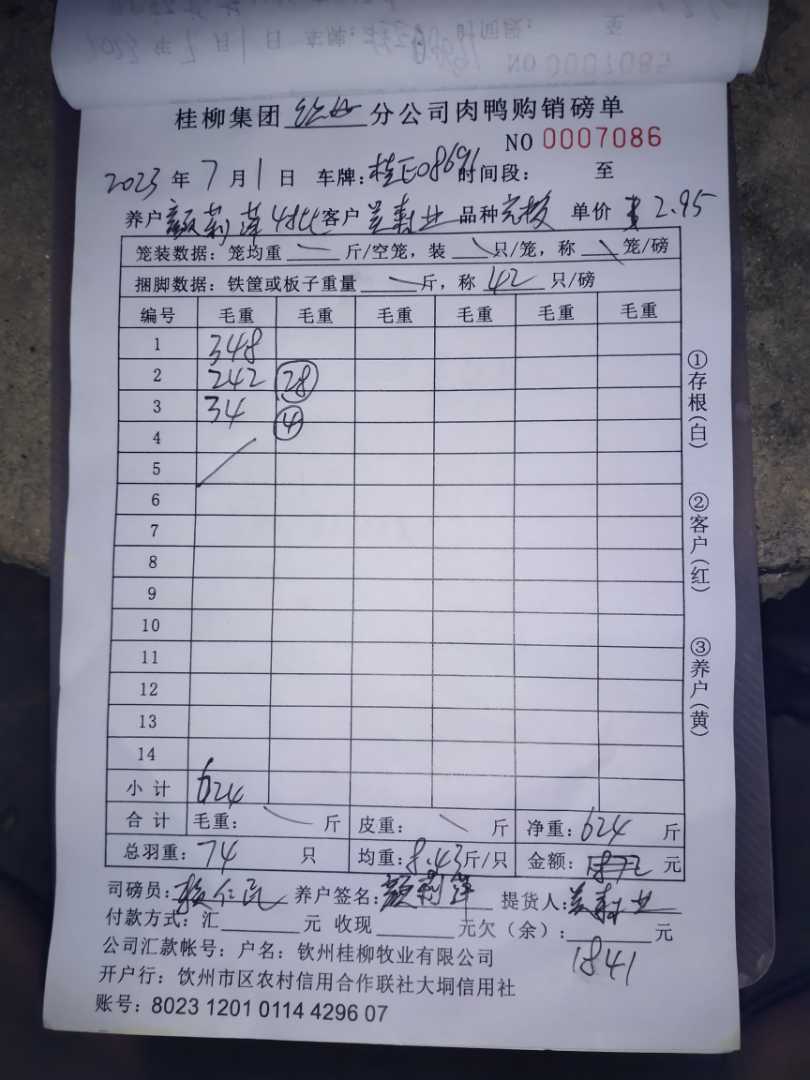 桂柳集团 分公司肉鸭购销磅单
NO 0007086
2023 年 7 月 1 日 车牌: 桂E08691 时间段: 至
养户 颜莉萍 4批 客户 业 品种 单价 2.95
笼装数据: 笼均重 斤/空笼, 装 只/笼, 称 笼/磅
捆脚数据: 铁筐或板子重量 斤, 称 42 只/磅
编号 毛重 毛重 毛重 毛重 毛重 毛重
1 348
2 242 28
3 34 4
4
5
6
7
8
9
10
11
12
13
14
小 计 624
合 计 毛重: 斤 皮重: 斤 净重: 624 斤
总羽重: 74 只 均重: 8.43 斤/只 金额: 元
司磅员: 仁民 养户签名: 颜莉萍 提货人: 业
付款方式: 汇 元 收现 元欠 (余): 元
1841
公司汇款帐号: 户名: 钦州桂柳牧业有限公司
开户行: 饮州市区农村信用合作联社大垌信用社
账号: 8023 1201 0114 4296 07
①存根(白)
②客户(红)
③养户(黄)